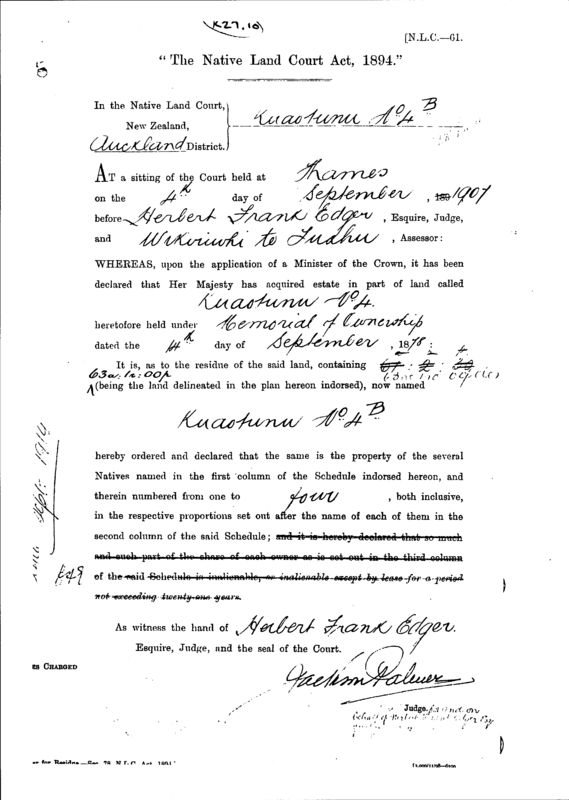 K27.10
[N.L.C.—61.
"The Native Land Court Act, 1894."
In the Native Land Court,
New Zealand,
Auckland District.
Kuaotunu No 4 B
AT a sitting of the Court held at Thames
on the 4th day of September , 189 1907
before Herbert Frank Edger , Esquire, Judge,
and , Assessor:
WHEREAS, upon the application of a Minister of the Crown, it has been
declared that Her Majesty has acquired estate in part of land called
Kuaotunu No 4.
heretofore held under Memorial of Ownership
dated the 4th day of September , 1878 :
It is, as to the residue of the said land, containing
63a. 1r. 00p
(being the land delineated in the plan hereon indorsed), now named
Kuaotunu No 4 B
hereby ordered and declared that the same is the property of the several
Natives named in the first column of the Schedule indorsed hereon, and
therein numbered from one to four , both inclusive,
in the respective proportions set out after the name of each of them in the
second column of the said Schedule; and it is hereby declared that so much
and such part of the share of each owner as is set out in the third column
of the said Schedule is inalienable, or inalienable except by lease for a period
not exceeding twenty-one years.
As witness the hand of Herbert Frank Edger.
Esquire, Judge, and the seal of the Court.
Jackson Palmer
Judge. for and on
behalf of
ES CHARGED
Sept: 1910